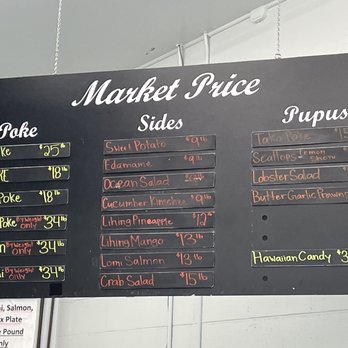 Market Price
Poke
$25 lb
$18 lb
Poke $18 lb
Poke By Weight only $34 lb
By Weight only $34 lb
By Weight only $34 lb
Sides
Sweet Potato $9 lb
Edamame $9 lb
Ocean Salad
Cucumber Kimchee $9 lb
Lihing Pineapple $12 lb
Lihing Mango $13 lb
Lomi Salmon $13 lb
Crab Salad $15 lb
Pupus
Tako Poke
Scallops Lemon
Lobster Salad
Butter Garlic Prawns
Hawaiian Candy
Salmon,
x Plate
Pound
nly